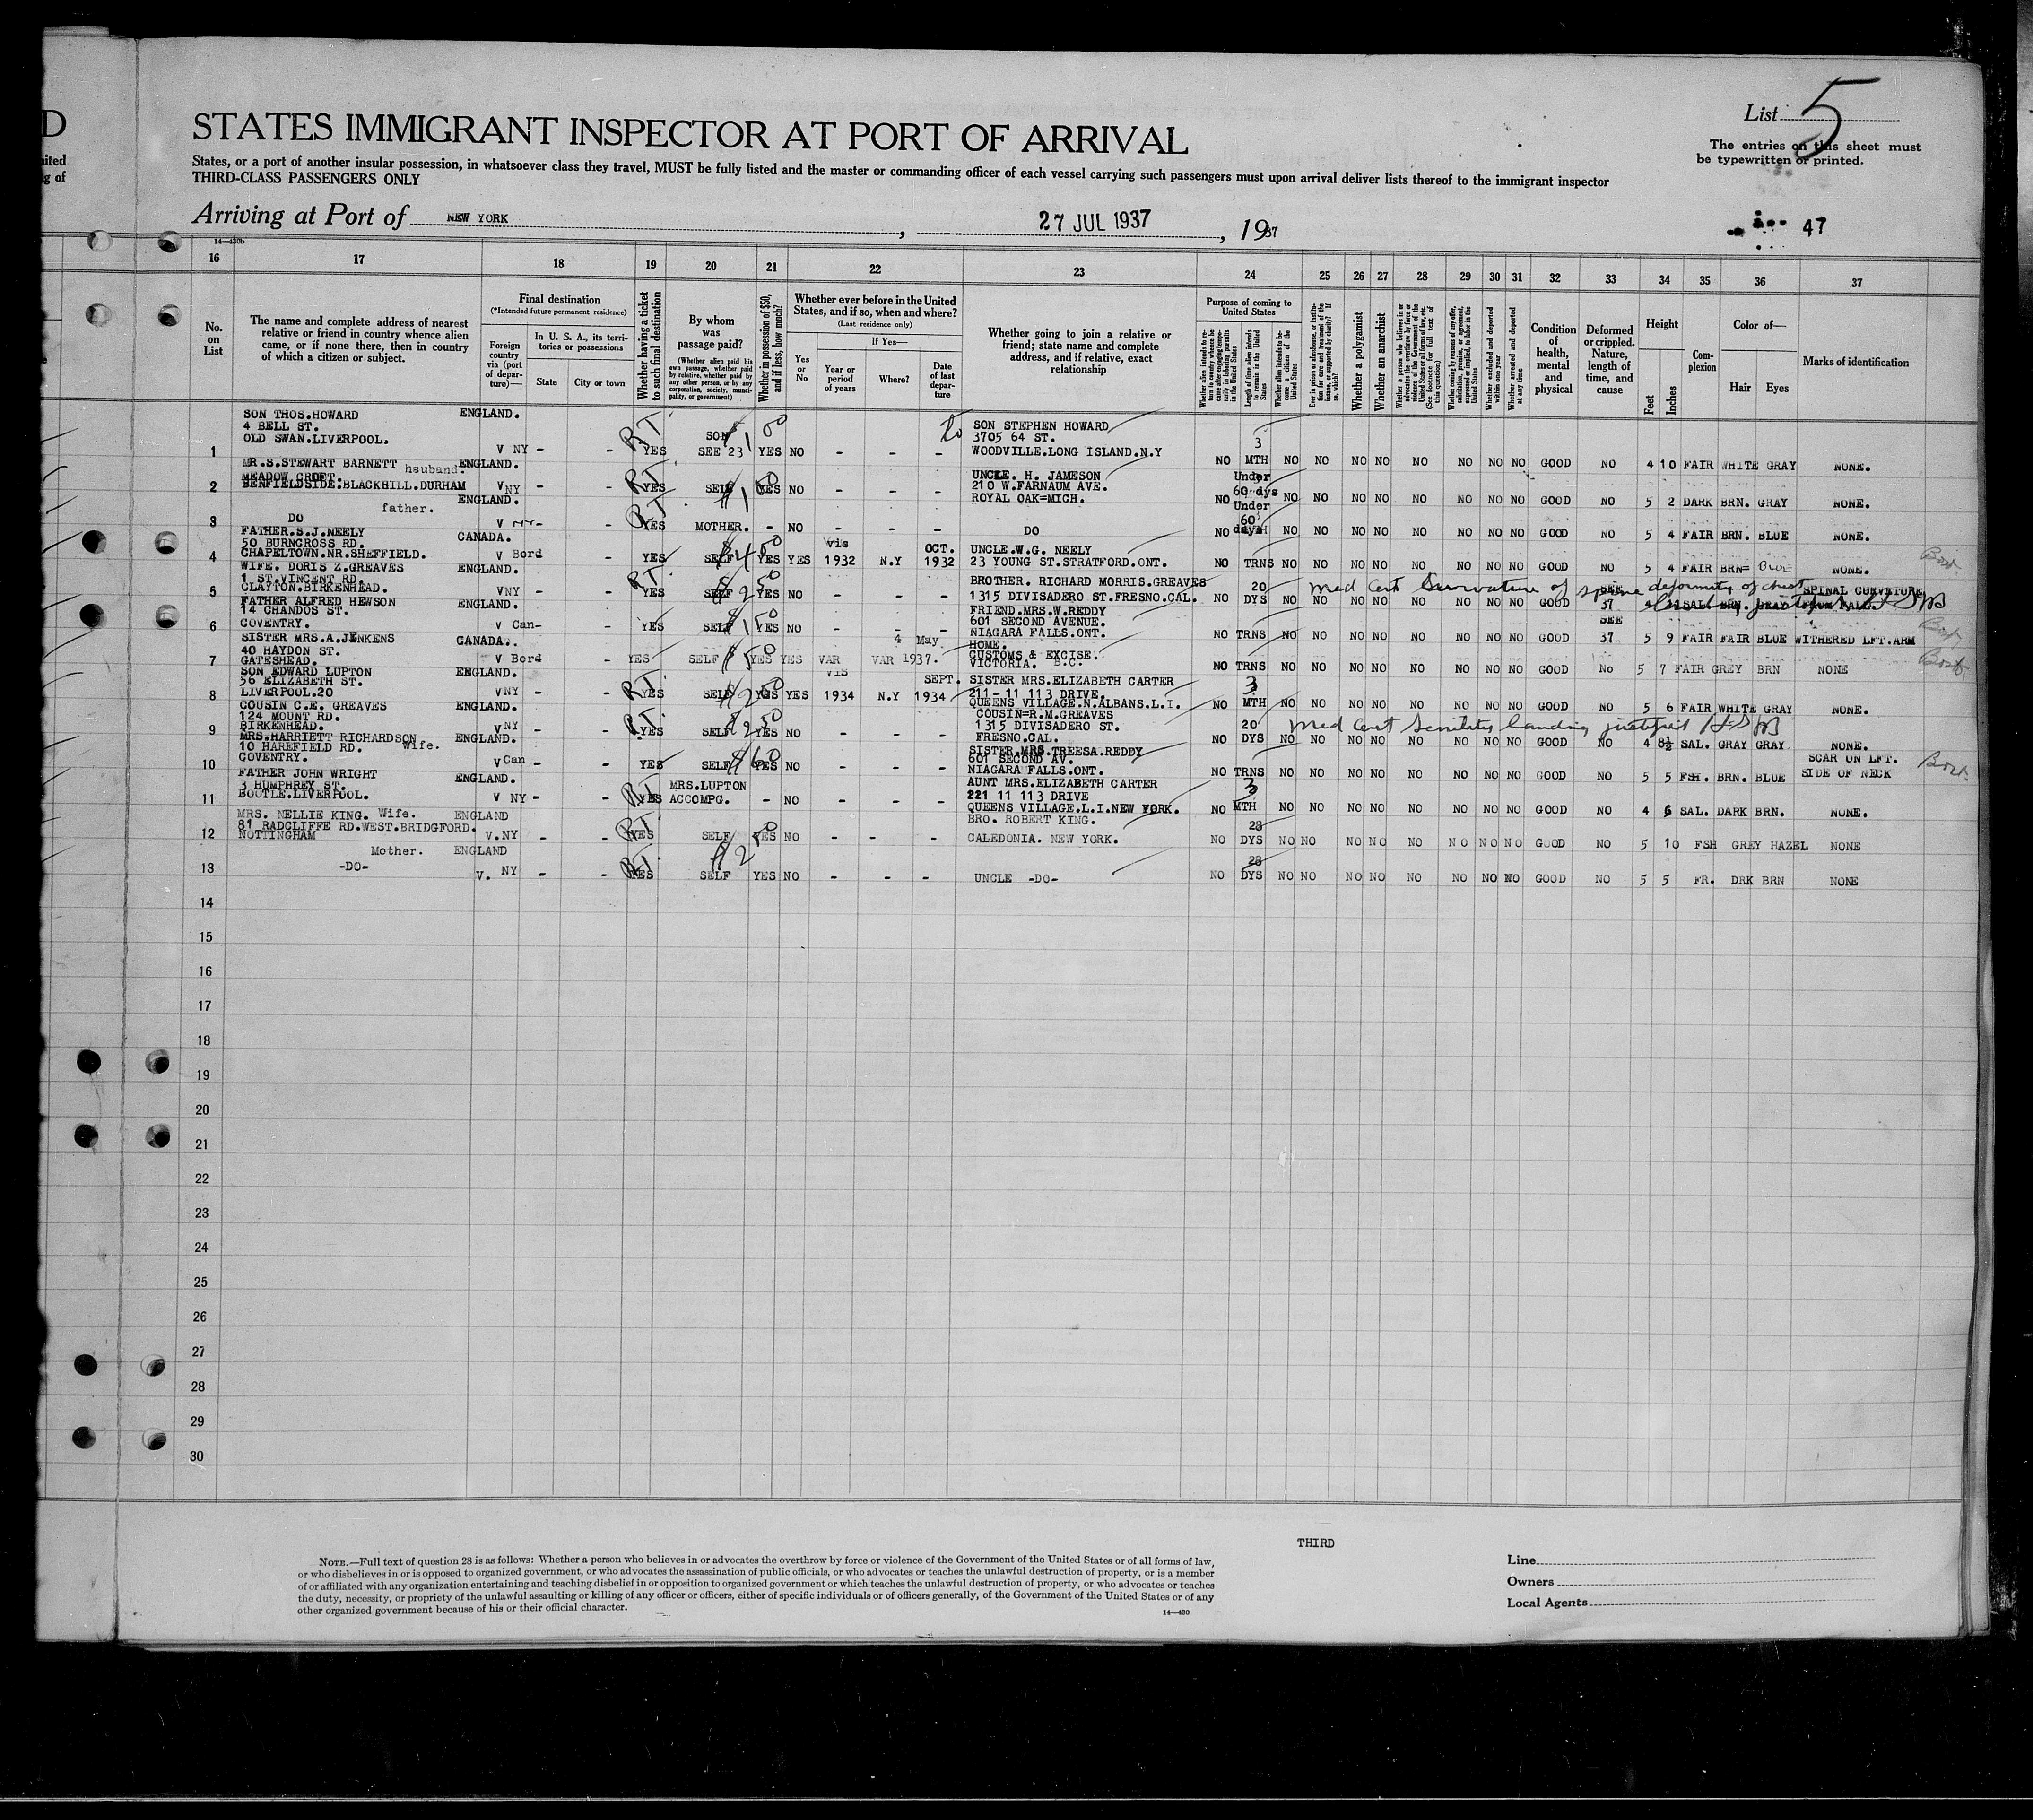 D
STATES IMMIGRANT INSPECTOR AT PORT OF ARRIVAL
List 5
The entries on this sheet must
be typewritten or printed.
ited
g of
States, or a port of another insular possession, in whatsoever class they travel, MUST be fully listed and the master or commanding officer of each vessel carrying such passengers must upon arrival deliver lists thereof to the immigrant inspector
THIRD-CLASS PASSENGERS ONLY
Arriving at Port of NEW YORK, 27 JUL 1937, 1937
47
14—430b
16 17 18 19 20 21 22 23 24 25 26 27 28 29 30 31 32 33 34 35 36 37
No. on List
The name and complete address of nearest relative or friend in country whence alien came, or if none there, then in country of which a citizen or subject.
Final destination
(*Intended future permanent residence)
Foreign country via (port of departure)—
In U. S. A., its territories or possessions
State
City or town
Whether having a ticket to such final destination
By whom was passage paid?
(Whether alien paid his own passage, whether paid by relative, whether paid by any other person, or by any corporation, society, municipality, or government)
Whether in possession of $50, and if less, how much?
Whether ever before in the United States, and if so, when and where?
(Last residence only)
Yes or No
If Yes—
Year or period of years
Where?
Date of last departure
Whether going to join a relative or friend; state name and complete address, and if relative, exact relationship
Purpose of coming to United States
Whether a polygamist
Whether an anarchist
Condition of health, mental and physical
Deformed or crippled. Nature, length of time, and cause
Height
Feet
Inches
Complexion
Color of—
Hair
Eyes
Marks of identification
SON THOS.HOWARD ENGLAND.
4 BELL ST. SON STEPHEN HOWARD
OLD SWAN.LIVERPOOL. SON $100 3705 64 ST. 3
1 V NY - - RT YES SEE 23 YES NO - - - WOODVILLE.LONG ISLAND.N.Y NO MTH NO NO NO NO NO NO NO NO GOOD NO 4 10 FAIR WHITE GRAY NONE.
MR.S.STEWART BARNETT hsuband. ENGLAND.
MEADOW CROFT. UNCLE. H. JAMESON Under
2 BENFIELDSIDE.BLACKHILL.DURHAM V NY - RT YES SELF YES NO - - - 210 W.FARNAUM AVE. 60 dys
ROYAL OAK=MICH. NO NO NO NO NO NO NO NO NO GOOD NO 5 2 DARK BRN. GRAY NONE.
father. ENGLAND. Under
3 DO V NY- - RT YES MOTHER. - NO - - - DO NO 60 days NO NO NO NO NO NO NO NO GOOD NO 5 4 FAIR BRN. BLUE NONE.
FATHER.S.J.NEELY CANADA.
50 BURNCROSS RD. vis OCT. UNCLE.W.G. NEELY
4 CHAPELTOWN.NR.SHEFFIELD. V Bord - YES SELF YES YES 1932 N.Y 1932 23 YOUNG ST.STRATFORD.ONT. NO TRNS NO NO NO NO NO NO NO NO GOOD NO 5 4 FAIR BRN= BLUE NONE.
WIFE. DORIS Z.GREAVES ENGLAND.
1 ST.VINCENT RD. BROTHER. RICHARD MORRIS.GREAVES 20 Med Cert Curvature of spine deformity of chest SEE SPINAL CURVATURE
5 CLAYTON.BIRKENHEAD. VNY - RT YES SELF $250 YES NO - - - 1315 DIVISADERO ST.FRESNO.CAL. NO DYS NO NO NO NO NO NO NO NO GOOD 37
FATHER ALFRED HEWSON ENGLAND.
14 CHANDOS ST. FRIEND.MRS.W.REDDY
6 COVENTRY. V Can- - YES SELF $150 YES NO - - - 601 SECOND AVENUE. SEE
NIAGARA FALLS.ONT. NO TRNS NO NO NO NO NO NO NO NO GOOD 37 5 9 FAIR FAIR BLUE WITHERED LFT.ARM
SISTER MRS.A.JENKENS CANADA.. 4 May HOME.
40 HAYDON ST. CUSTOMS & EXCISE.
7 GATESHEAD. V Bord - YES SELF YES YES VAR VAR 1937. VICTORIA. B.C. NO TRNS NO NO NO NO NO NO NO NO GOOD No 5 7 FAIR GREY BRN NONE
SON EDWARD LUPTON ENGLAND. vis
56 ELIZABETH ST. SEPT. SISTER MRS.ELIZABETH CARTER 3
8 LIVERPOOL.20 VNY - - RT. YES SELF YES YES 1934 N.Y 1934 211-11 113 DRIVE.
QUEENS VILLAGE.N.ALBANS.L.I. NO MTH NO NO NO NO NO NO NO NO GOOD NO 5 6 FAIR WHITE GRAY NONE.
COUSIN C.E. GREAVES ENGLAND.
124 MOUNT RD. COUSIN=R.M.GREAVES
9 BIRKENHEAD. V NY - - RT. YES SELF $250 YES NO - - - 1315 DIVISADERO ST. 20 Med Cert Senility landing
FRESNO.CAL. NO DYS NO NO NO NO NO NO NO NO GOOD NO 4 8½ SAL. GRAY GRAY NONE.
MRS.HARRIETT RICHARDSON Wife. ENGLAND.
10 HAREFIELD RD. SISTER.MRS.TREESA.REDDY SCAR ON LFT.
10 COVENTRY. V Can - - YES SELF $60 YES NO - - - 601 SECOND AV. SIDE OF NECK
NIAGARA FALLS.ONT. NO TRNS NO NO NO NO NO NO NO NO GOOD NO 5 5 FSH. BRN. BLUE
FATHER JOHN WRIGHT ENGLAND.
3 HUMPHREY ST. MRS.LUPTON AUNT MRS.ELIZABETH CARTER 3
11 BOOTLE.LIVERPOOL. V NY - - RT YES ACCOMPG. - NO - - - 221 11 113 DRIVE
QUEENS VILLAGE.L.I.NEW YORK. NO MTH NO NO NO NO NO NO NO NO GOOD NO 4 6 SAL. DARK BRN. NONE.
MRS. NELLIE KING. Wife. ENGLAND
81 RADCLIFFE RD.WEST.BRIDGFORD. BRO. ROBERT KING. 28
12 NOTTINGHAM V.NY - - RT. YES SELF YES NO - - - CALEDONIA. NEW YORK. NO DYS NO NO NO NO NO NO NO NO GOOD NO 5 10 FSH GREY HAZEL NONE
Mother. ENGLAND 28
13 -DO- V. NY - - RT. YES SELF YES NO - - - UNCLE -DO- NO DYS NO NO NO NO NO NO NO NO GOOD NO 5 5 FR. DRK BRN NONE
14
15
16
17
18
19
20
21
22
23
24
25
26
27
28
29
30
THIRD
NOTE.—Full text of question 28 is as follows: Whether a person who believes in or advocates the overthrow by force or violence of the Government of the United States or of all forms of law,
or who disbelieves in or is opposed to organized government, or who advocates the assassination of public officials, or who advocates or teaches the unlawful destruction of property, or is a member
of or affiliated with any organization entertaining and teaching disbelief in or opposition to organized government or which teaches the unlawful destruction of property, or who advocates or teaches
the duty, necessity, or propriety of the unlawful assaulting or killing of any officer or officers, either of specific individuals or of officers generally, of the Government of the United States or of any
other organized government because of his or their official character.
14—430
Line
Owners
Local Agents